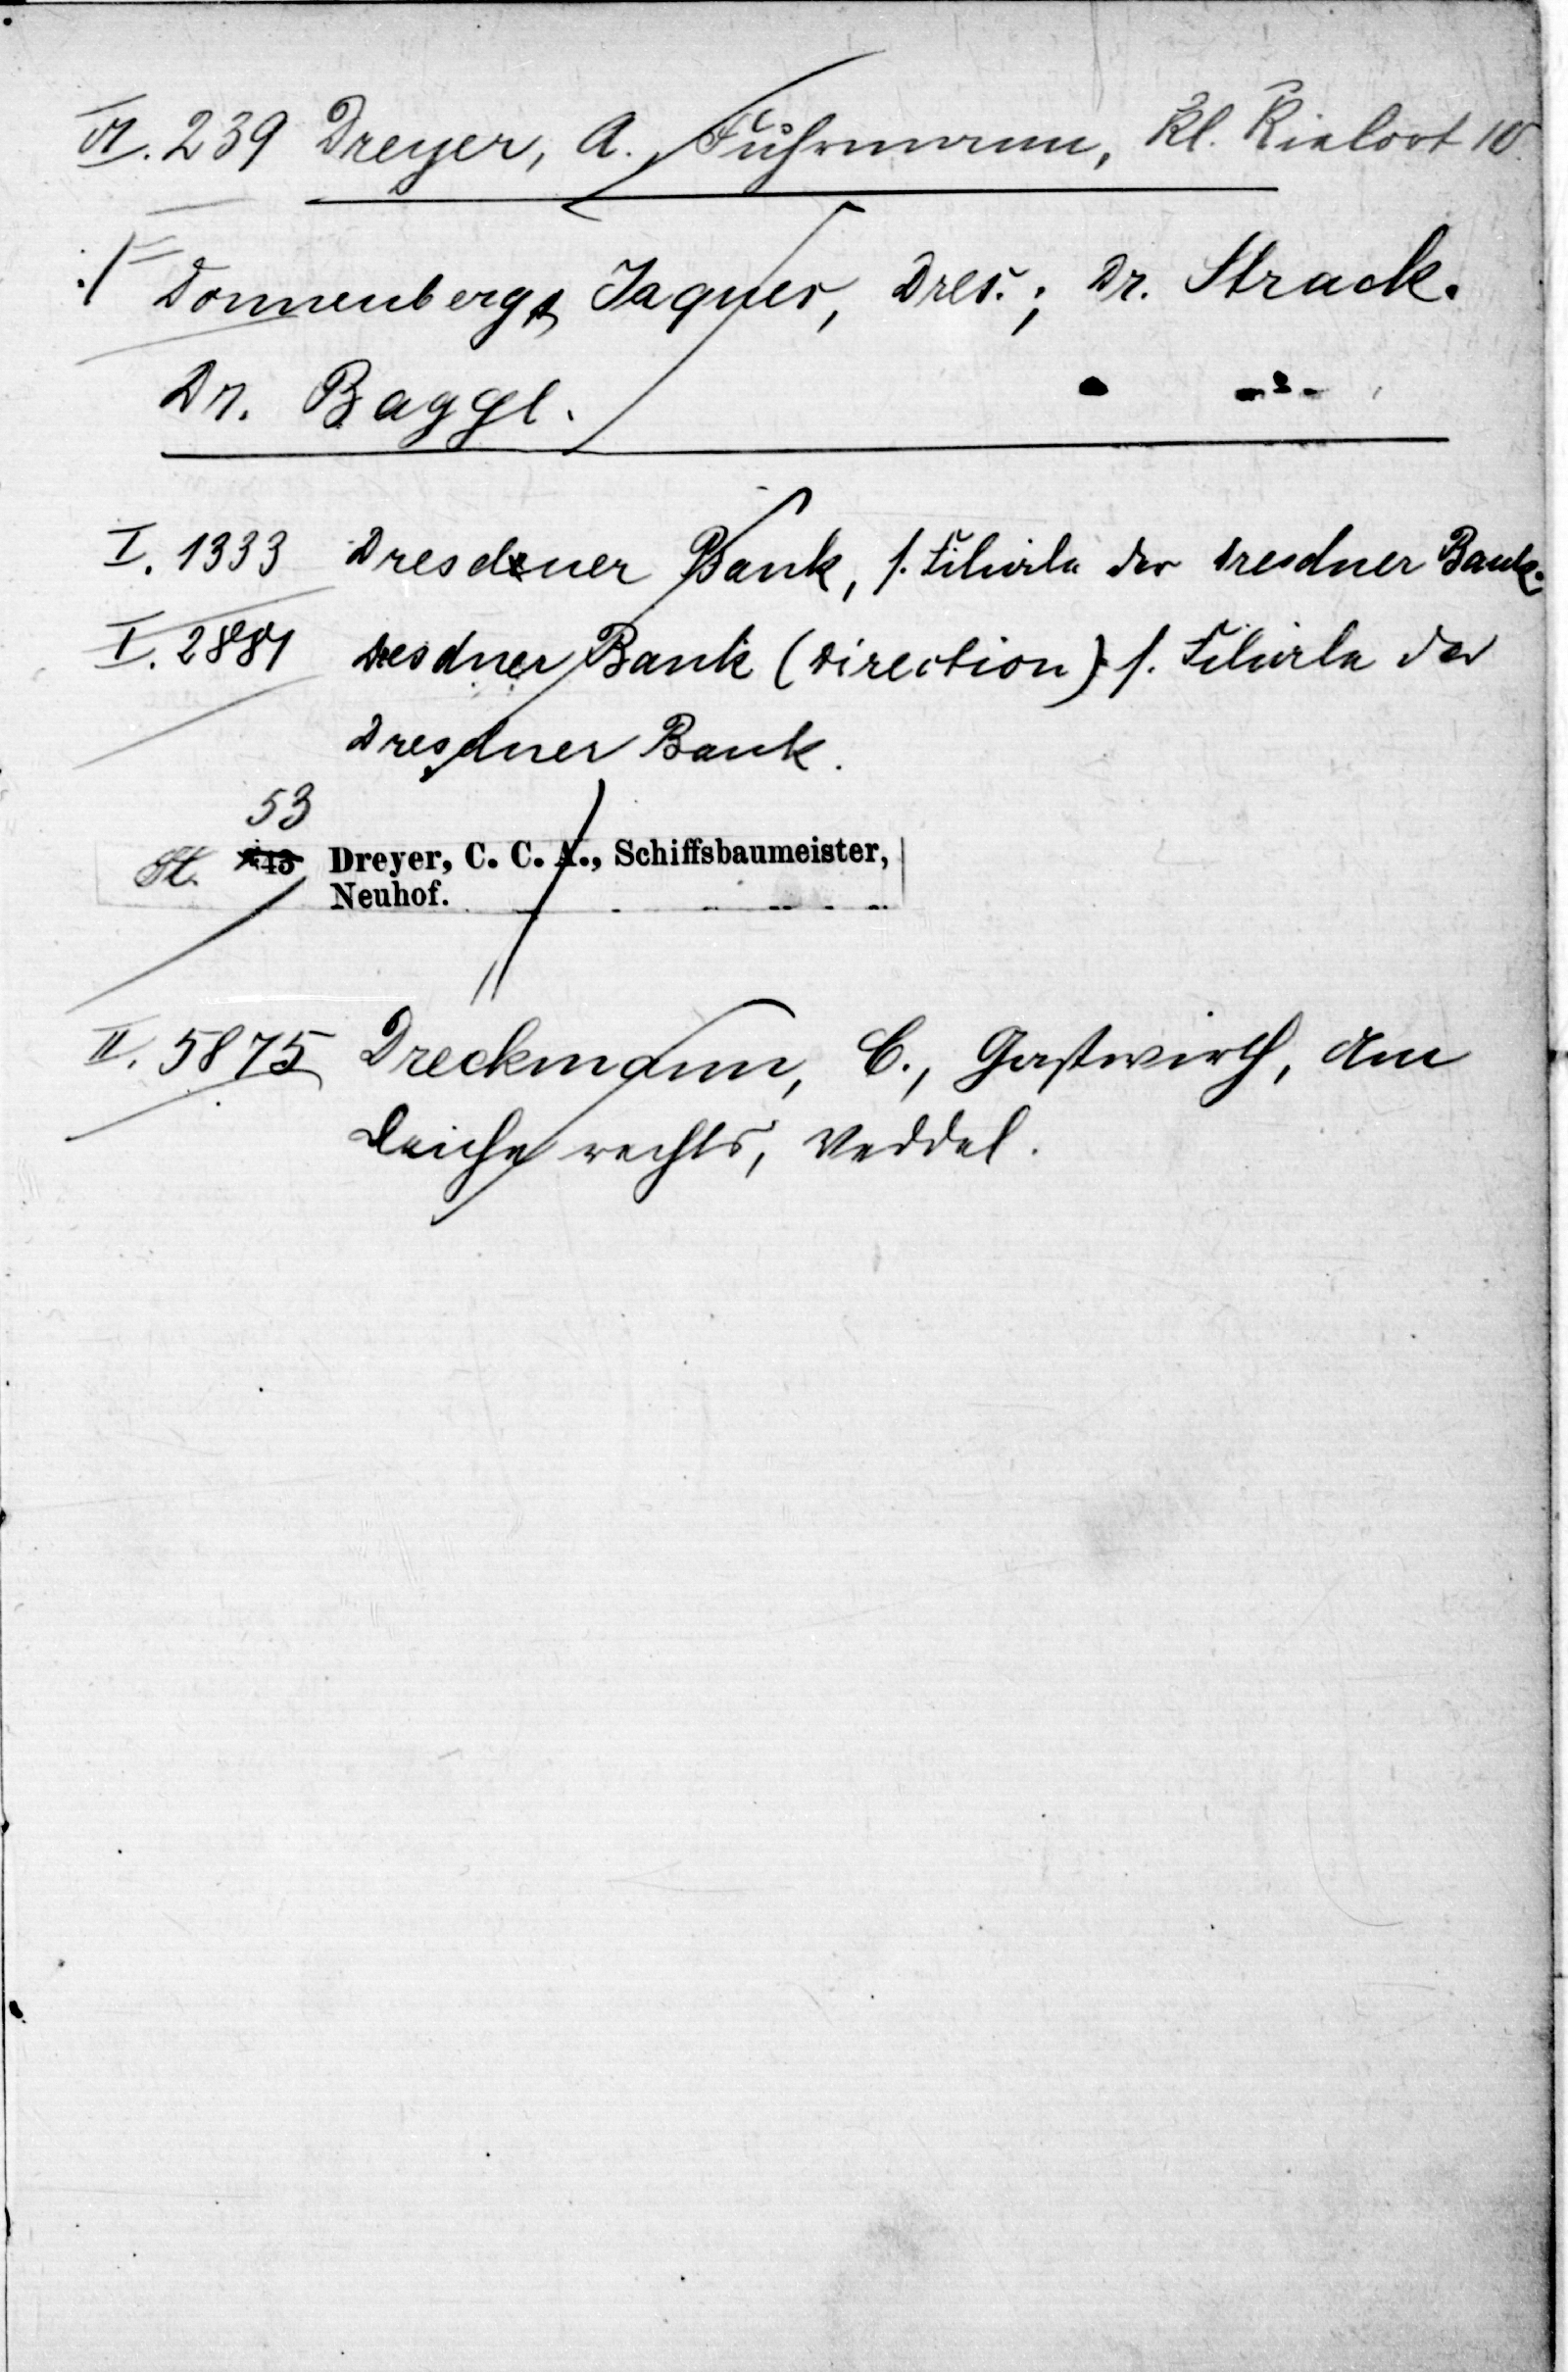 VI. 239 Dreyer, A. Fuhrmann, Kl. Kielort 10.
Donnenberg, Jaques, Dres.; Dr. Strack.
Dr. Baggl.
I. 1333 Dresdner Bank, s. Filiale der Dresdner Bank.
I. 2881 Dresdner Bank (Direction) s. Filiale der
Dresdner Bank.
53
H. 143 Dreyer, C. C. A., Schiffsbaumeister,
Neuhof.
II. 5875 Dreckmann, C., Gastwirth, Am
Deiche rechts, Veddel.